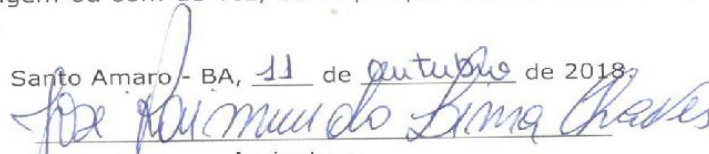 Santo Amaro - BA, 11 de outubro de 2018
José Raimundo Lima Chaves